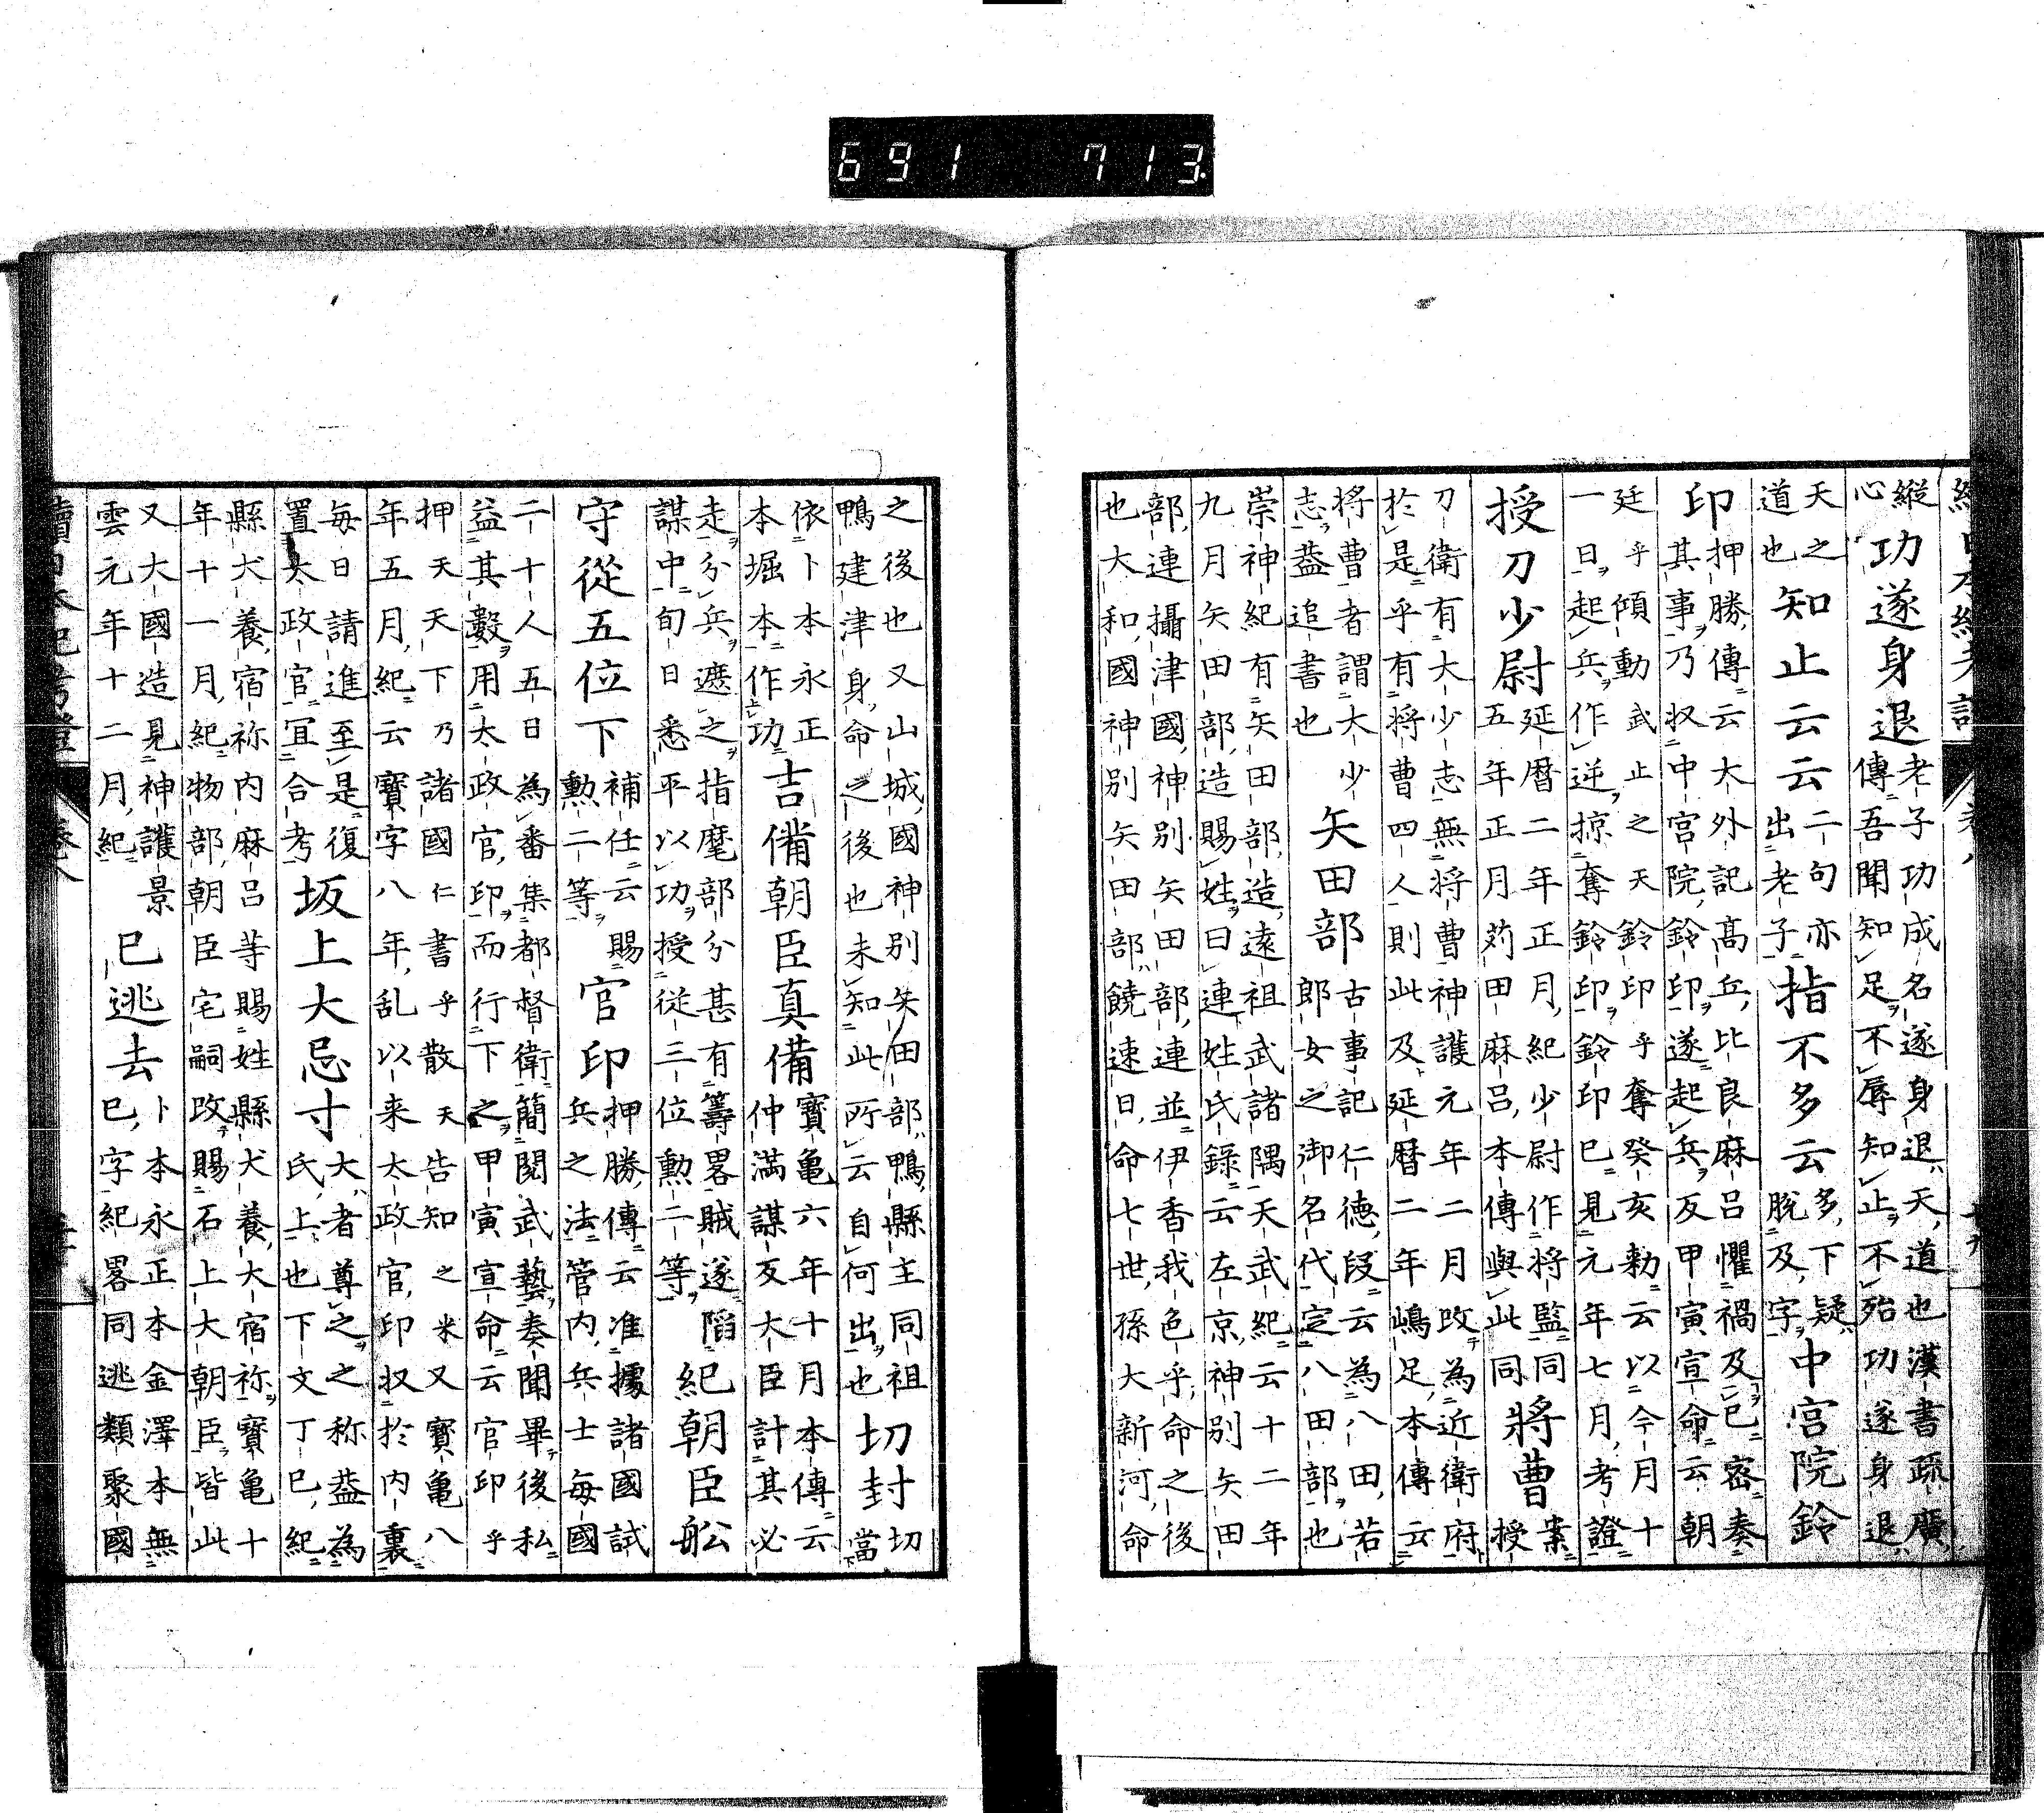 縱
心
功遂身退
老子功成名遂身退天道也漢書疏廣
傳吾聞知足不辱知止不殆功遂身退
天之
道也
知止云云
二句亦
出老子
指不多云
多下疑
脱及字
中宮院鈴
印
押勝傳云大外記高丘比良麻呂懼禍及已密奏
其事乃収中宮院鈴印遂起兵反甲寅宣命云朝
廷乎傾動武止之天鈴印乎奪癸亥勅云以今月十
一日起兵作逆掠奪鈴印鈴印已見元年七月考證
授刀少尉
延暦二年正月紀少尉作將監同
五年正月苅田麻呂本傳與此同
將曹
案
授
刀衛有大少志無将曹神護元年二月改為近衛府
於是乎有将曹四人則此及延暦二年嶋足本傳云
将曹者謂大少
志葢追書也
矢田部
古事記仁德段云為八田若
郎女之御名代定八田部也
崇神紀有矢田部造遠祖武諸隅天武紀云十二年
九月矢田部造賜姓曰連姓氏録云左京神別矢田
部連攝津國神別矢田部連並伊香我色乎命之後
也大和國神別矢田部饒速日命七世孫大新河命
之後也又山城國神別矢田部鴨縣主同祖
鴨建津身命之後也未知此所云自何出也
切封
切
當
依卜本永正
本堀本作功
吉備朝臣真備
寶亀六年十月本傳云
仲満謀反大臣計其必
走分兵遮之指麾部分甚有籌畧賊遂陷
謀中旬日悉平以功授從三位勲二等
紀朝臣舩
守從五位下
補任云賜
勲二等
官印
押勝傳云准據諸國試
兵之法管内兵士每國
二十人五日為番集都督衛簡閲武藝奏聞畢後私
益其數用太政官印而行下之甲寅宣命云官印乎
押天天下乃諸國仁書乎散天告知之米又寶亀八
年五月紀云寶字八年乱以来太政官印収於内裏
每日請進至是復
置太政官宜合考
坂上大忌寸
大者尊之之称葢為
氏上也下文丁巳紀
縣犬養宿祢内麻呂等賜姓縣犬養大宿祢寶亀十
年十一月紀物部朝臣宅嗣改賜石上大朝臣皆此
又大國造見神護景
雲元年十二月紀
巳逃去
卜本永正本金澤本無
巳字紀畧同逃類聚國
691 713